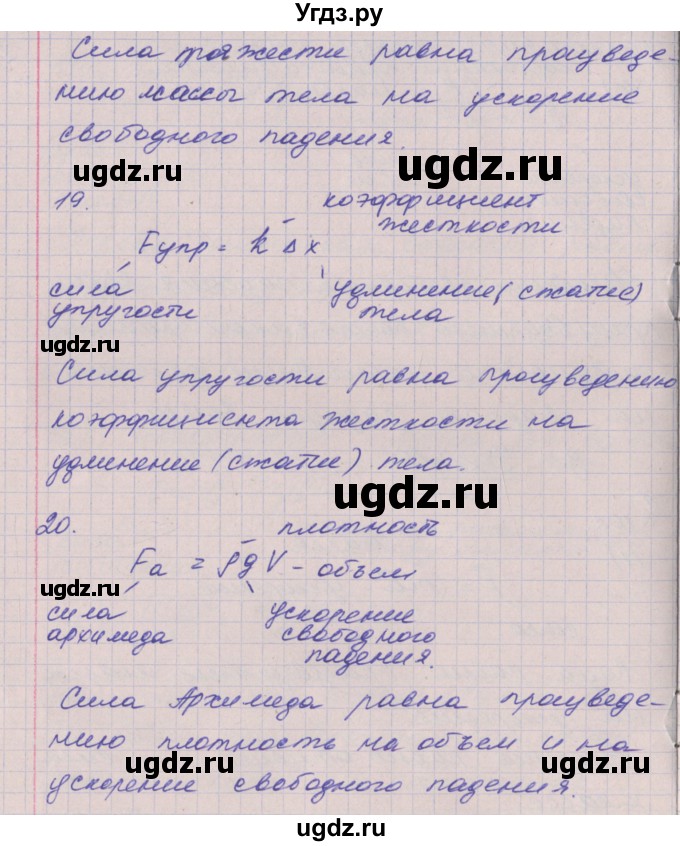 Угдз.ру
Сила тяжести равна произведе-
нию массы тела на ускорение
свободного падения.
ugdz.ru
ugdz.ru
19.
коэффициент
жесткости
Fупр = k Δx
сила
упругости
удлинение (сжатие)
тела
ugdz.ru
Сила упругости равна произведению
коэффициента жесткости на
удлинение (сжатие) тела.
ugdz.ru
20.
плотность
Fа = ρgV - объем
ugdz.ru
ugdz.ru
сила
архимеда
ускорение
свободного
падения.
Сила Архимеда равна произведе-
нию плотность на объем и на
ugdz.ru
ugdz.ru
ускорение свободного падения.
ugdz.ru